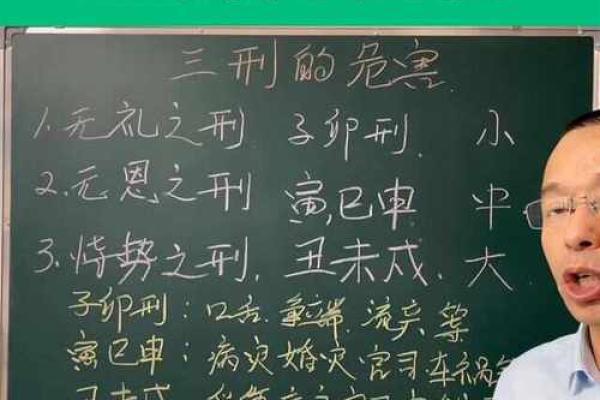 三刑的危害
1.无礼之刑 子卯刑. 小
2.无恩之刑 寅巳申 中
3.恃势之刑. 丑未戌. 大
子卯刑：口舌. 争端. 流产等
寅巳申：病灾婚灾官司车祸
丑未戌